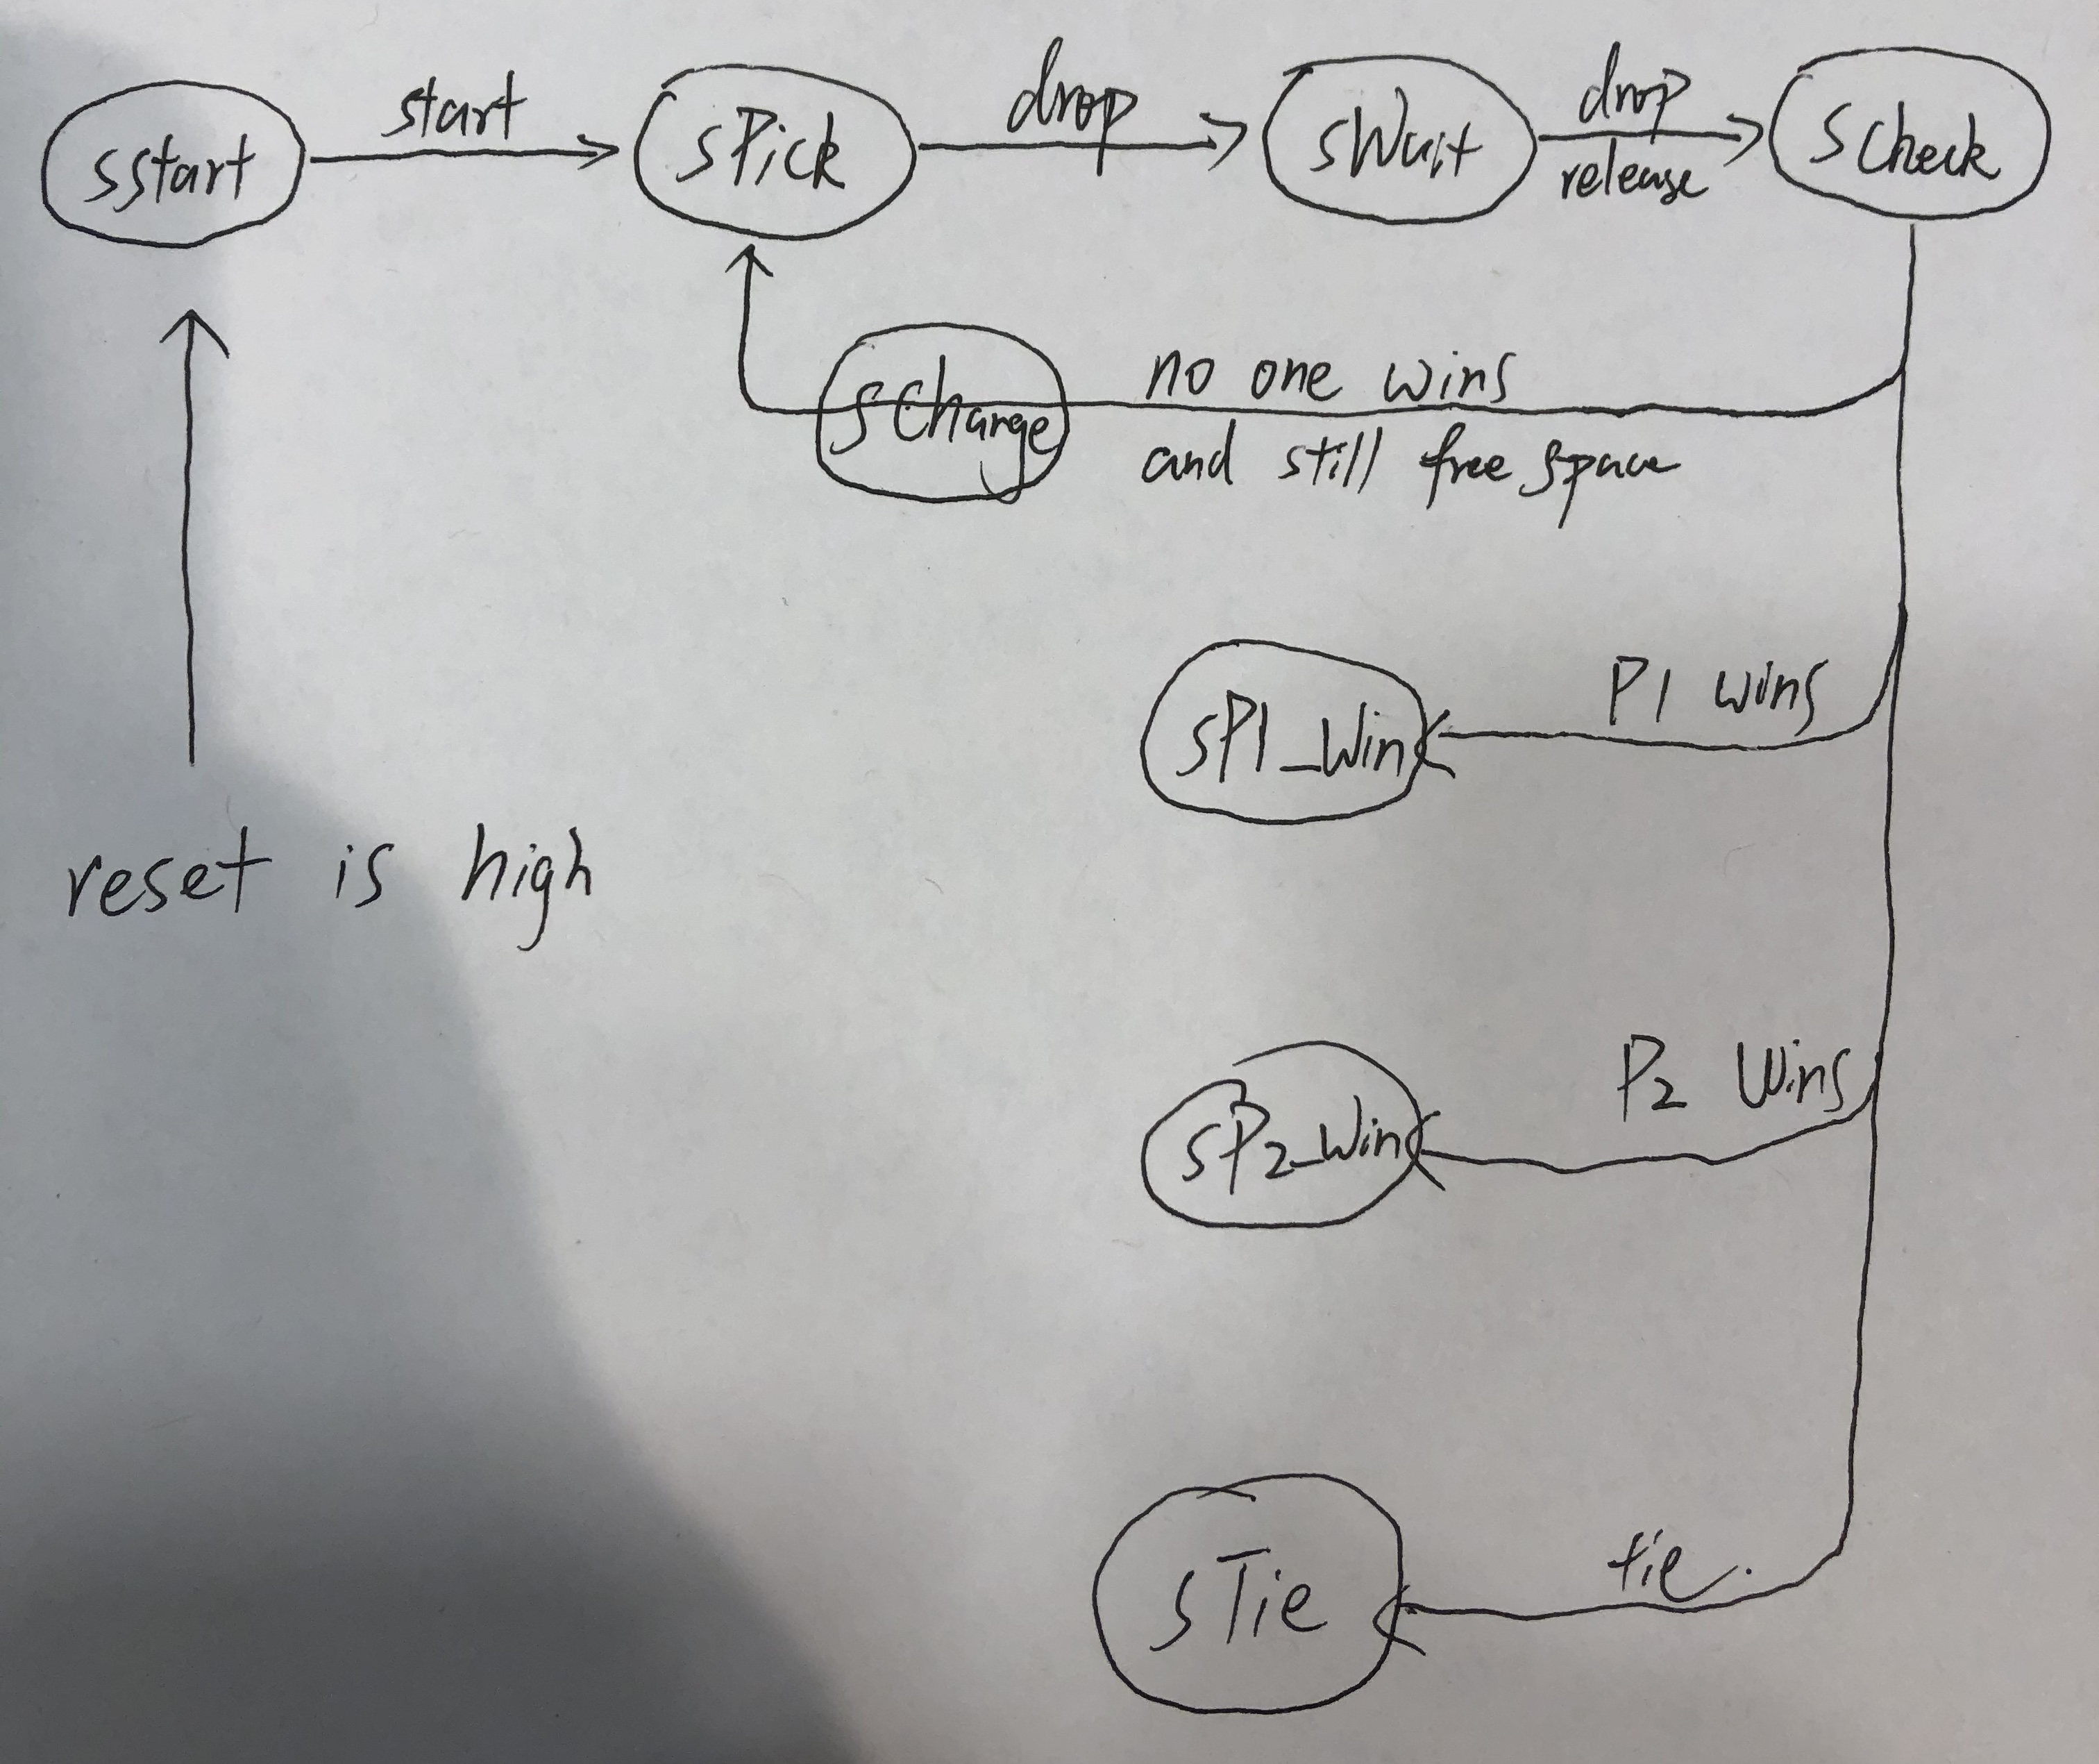 sstart
start
sPick
drop
sWait
drop
release
sCheck
sChange
no one wins
and still free space
sP1_Win
P1 wins
reset is high
sP2_Win
P2 Wins
sTie
tie.